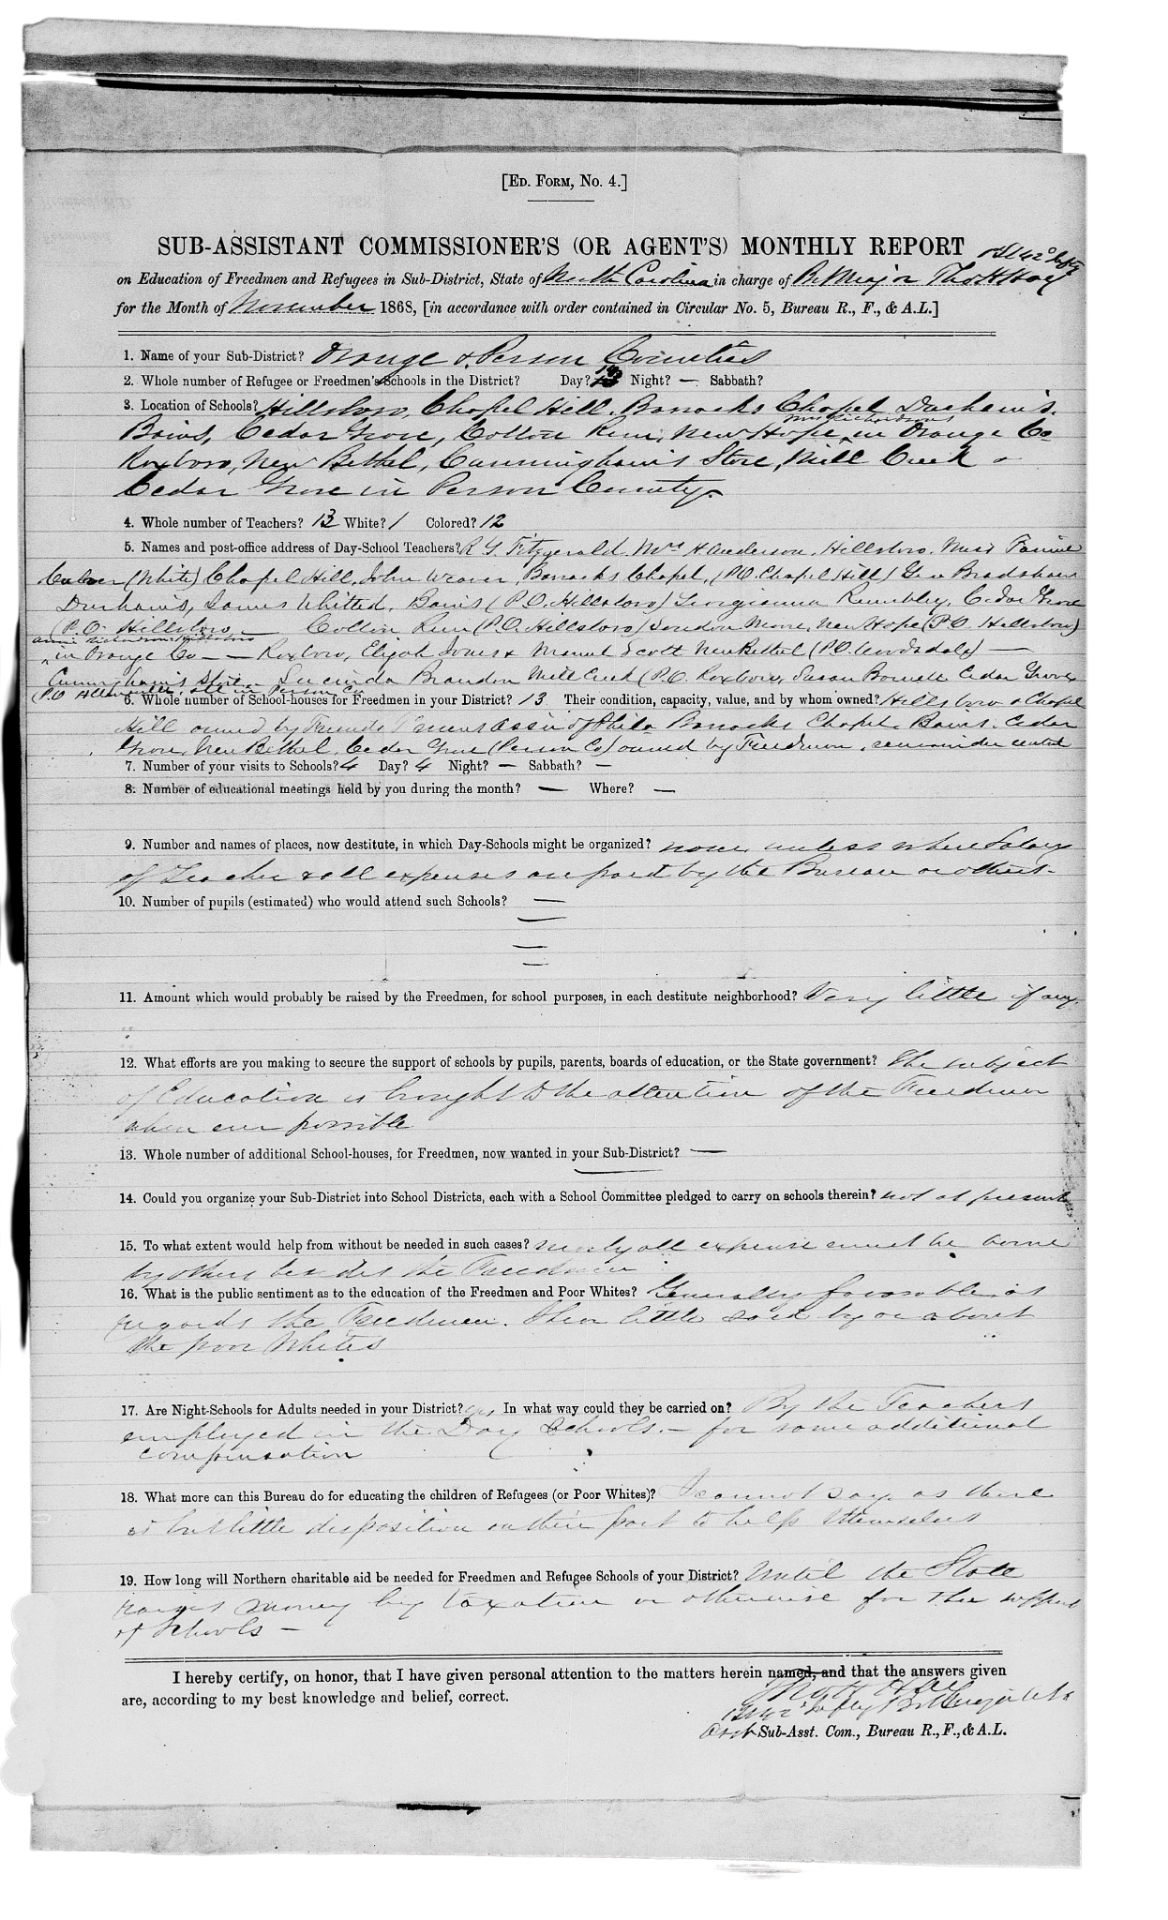 [ED. FORM, No. 4.]
SUB-ASSISTANT COMMISSIONER'S (OR AGENT'S) MONTHLY REPORT
on Education of Freedmen and Refugees in Sub-District, State of North Carolina in charge of Bt Major Thos H Hay
for the Month of November 1868, [in accordance with order contained in Circular No. 5, Bureau R., F., & A.L.]
1. Name of your Sub-District? Orange & Person Counties
2. Whole number of Refugee or Freedmen's Schools in the District? Day? 13 Night? — Sabbath?
3. Location of Schools? Hillsboro, Chapel Hill, Barracks Chapel, Durham's,
Bains, Cedar Grove, Cotton Run, New Hope, in Orange Co
Roxboro, New Bethel, Cunningham's Store, Mill Creek &
Cedar Grove in Person County.
4. Whole number of Teachers? 13 White? 1 Colored? 12
5. Names and post-office address of Day-School Teachers? R G Fitzgerald. Mrs H Anderson, Hillsboro. Miss Fannie
(White) Chapel Hill, John Weaver, Barracks Chapel, (P.O. Chapel Hill) Geo Bradshaw
Durham's, James Whitted, Bains (P.O. Hillsboro) Georgianna Rumbley, Cedar Grove
(P.O. Hillsboro — Cotton Run (P.O. Hillsboro) London Moore, New Hope (P.O. Hillsboro)
in Orange Co — — Roxboro, Elijah Jones & Manuel Scott New Bethel (P.O. Woodsdale) —
Cunningham's Store — Lucinda Brandon Mill Creek (P.O. Roxboro, Susan Cedar Grove
(P.O. all in Person Co
6. Whole number of School-houses for Freedmen in your District? 13 Their condition, capacity, value, and by whom owned? Hillsboro & Chapel
Hill owned by Friends Assn of Phila Barracks Chapel, Bains, Cedar
Grove, New Bethel, Cedar Grove (Person Co) owned by Freedmen, remainder rented
7. Number of your visits to Schools? 4 Day? 4 Night? — Sabbath? —
8. Number of educational meetings held by you during the month? — Where? —
9. Number and names of places, now destitute, in which Day-Schools might be organized? none, unless where Salary
of Teacher & all expenses are paid by the Bureau or others.
10. Number of pupils (estimated) who would attend such Schools? —
—
—
—
11. Amount which would probably be raised by the Freedmen, for school purposes, in each destitute neighborhood? Very little if any.
12. What efforts are you making to secure the support of schools by pupils, parents, boards of education, or the State government? The subject
of Education is brought to the attention of the Freedmen
when ever possible
13. Whole number of additional School-houses, for Freedmen, now wanted in your Sub-District? —
14. Could you organize your Sub-District into School Districts, each with a School Committee pledged to carry on schools therein? not at present
15. To what extent would help from without be needed in such cases? nearly all expense must be borne
by others besides the Freedmen
16. What is the public sentiment as to the education of the Freedmen and Poor Whites? Generally favorable as
regards the Freedmen. There little said by or about
the poor Whites
17. Are Night-Schools for Adults needed in your District? yes In what way could they be carried on? By the Teachers
employed in the Day Schools. — for some additional
compensation
18. What more can this Bureau do for educating the children of Refugees (or Poor Whites)? I cannot say, as there
is but little disposition on their part to help themselves
19. How long will Northern charitable aid be needed for Freedmen and Refugee Schools of your District? Until the State
raises money by taxation or otherwise for the support
of Schools —
I hereby certify, on honor, that I have given personal attention to the matters herein named, and that the answers given
are, according to my best knowledge and belief, correct.
Thos H Hay
Bt Major
Asst Sub-Asst. Com., Bureau R., F., & A.L.